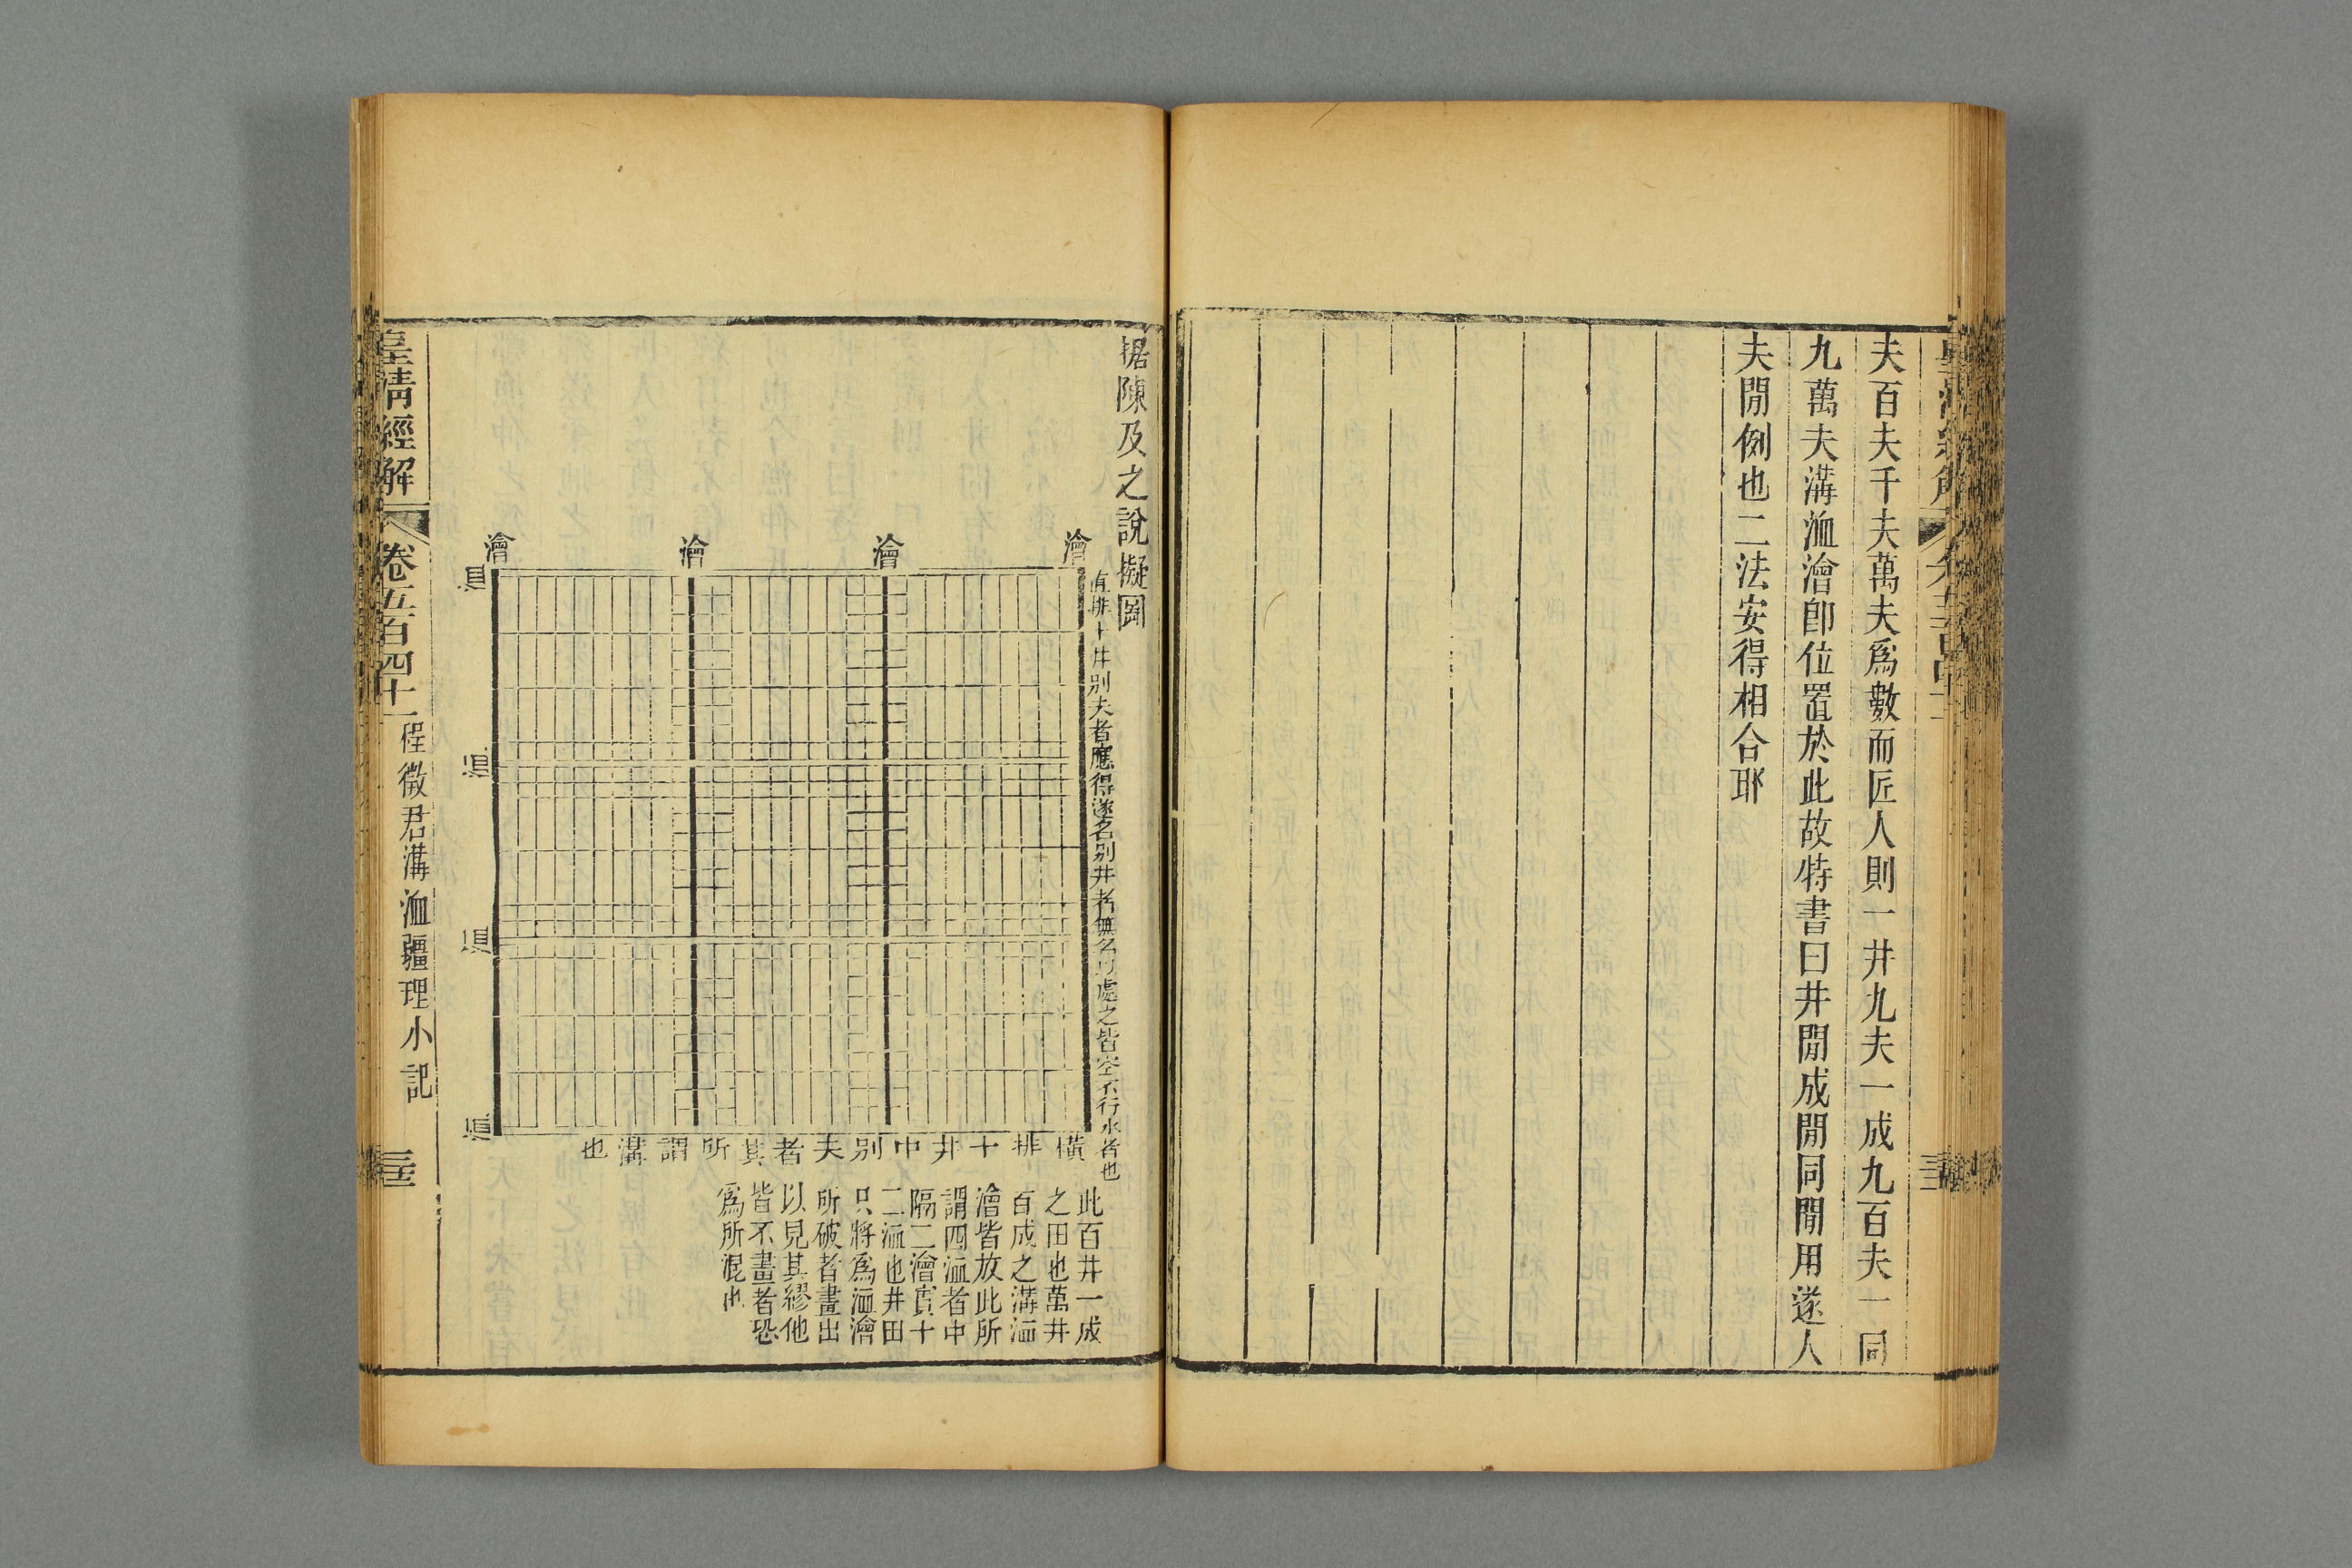 夫百夫千夫萬夫爲數而匠人則一井九夫一成九百夫一同
九萬夫溝洫澮卽位置於此故特書曰井閒成閒同閒用遂人
夫閒例也二法安得相合耶
据陳及之說擬圖
直排十井別夫者應得遂名別井者無名以處之皆空不行水者也
澮
澮
澮
澮
道
道
道
道
橫排十井中別夫者其所謂溝也
此百井一成
之田也萬井
百成之溝洫
澮皆放此所
謂四洫者中
隔二澮實十
二洫也井田
只將爲洫澮
所破者畫出
以見其繆他
皆不畫者恐
爲所混也
皇清經解
卷五百四十一
程徵君溝洫疆理小記